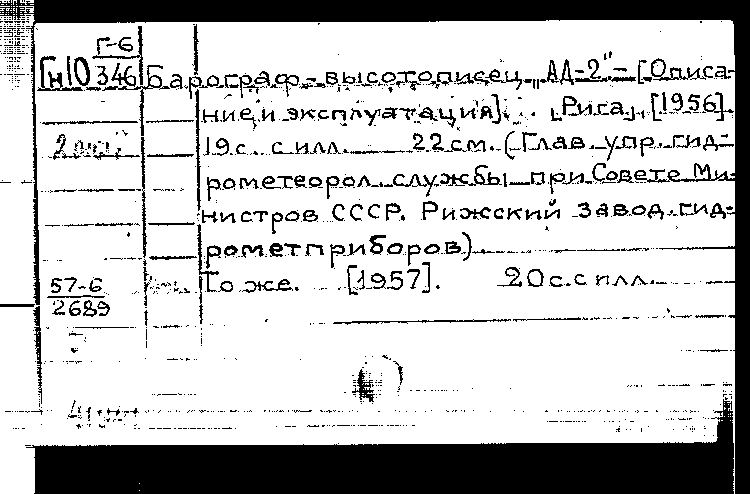 Г-6
Гн10 346 Барограф-высотописец „АД-2"-[Описа-
ние и эксплуатация]. Рига, [1956].
19с. с илл. 22см. (Глав. упр. гид-
рометеорол. службы при Совете Ми-
нистров СССР. Рижский завод гид-
рометприборов).
57-6
2689
То же. [1957]. 20с. с илл.